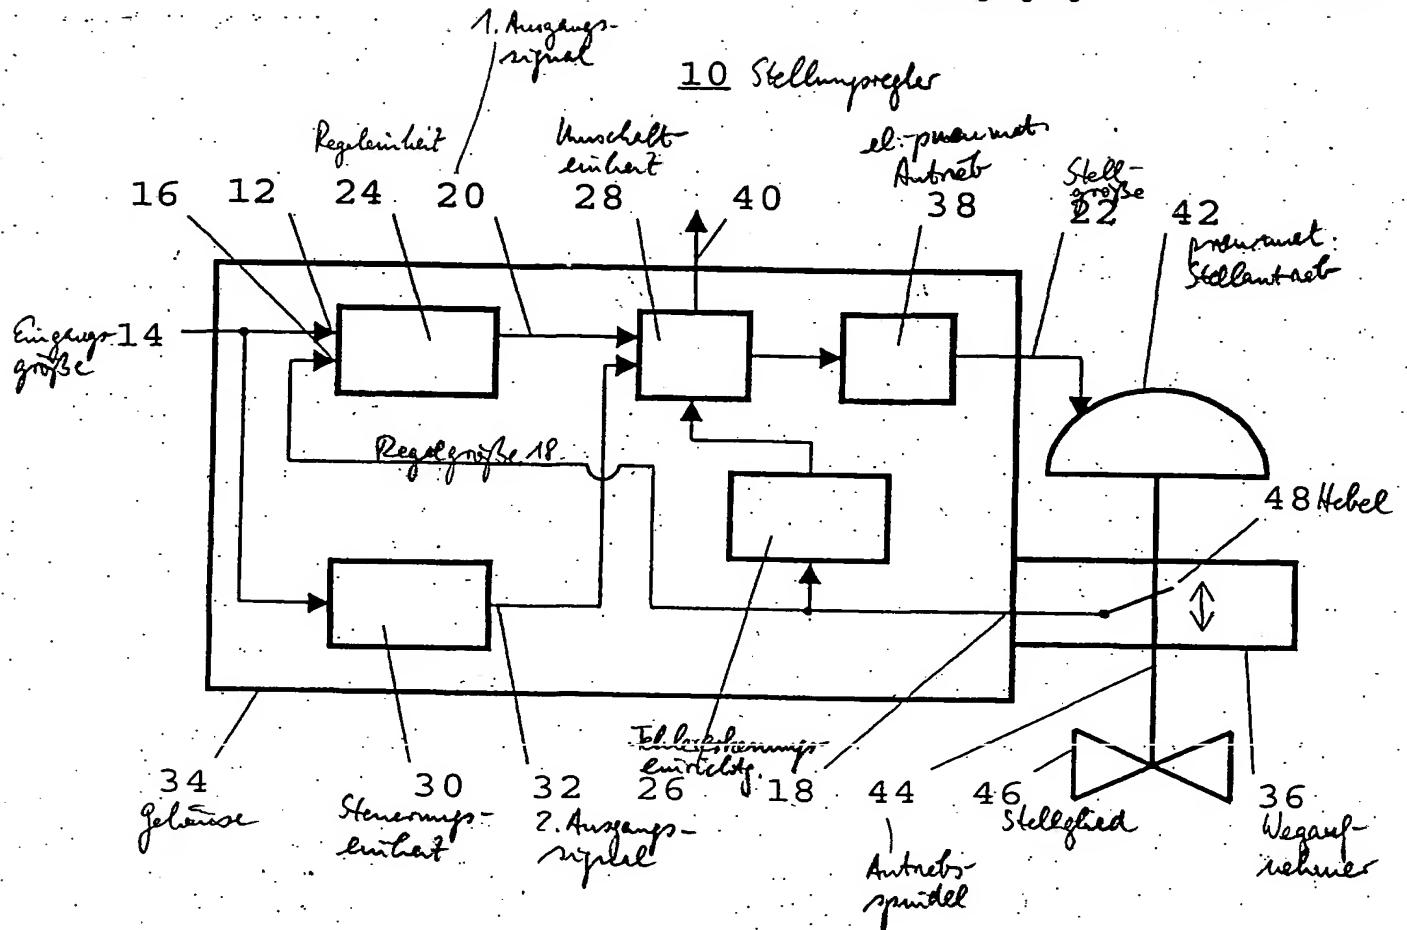 1. Ausgangs-
signal
10 Stellungsregler
Regeleinheit
Umschalt-
einheit
el.-pneumat.
Antrieb
Stell-
größe
16 12 24 20 28 40 38 22 42
pneumat.
Stellantrieb
Eingangs- 14
größe
Regelgröße 18
48 Hebel
34
Gehäuse
30
Steuerungs-
einheit
32
2. Ausgangs-
signal
Fehlererkennungs-
einrichtg.
26
18
44
Antriebs-
spindel
46
Stellglied
36
Wegauf-
nehmer